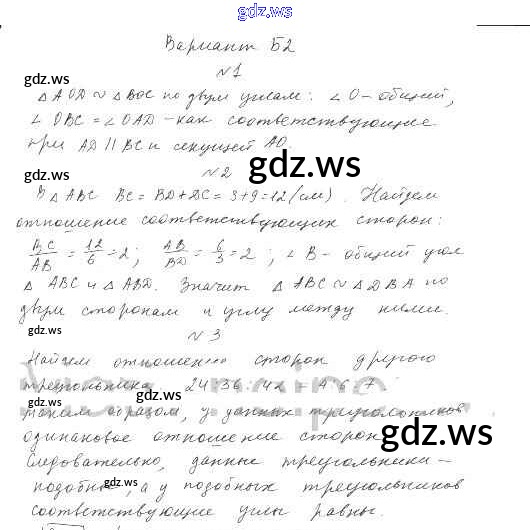 gdz.ws
Вариант Б2
№1
gdz.ws
△AOD ~ △BOC по двум углам: ∠O - общий,
∠OBC = ∠OAD - как соответствующие
при AD || BC и секущей AO.
gdz.ws
№2
gdz.ws
В △ABC BC = BD + DC = 3+9 = 12 (см). Найдем
отношение соответствующих сторон:
BC/AB = 12/6 = 2; AB/BD = 6/3 = 2; ∠B - общий угол
△ABC и △ABD. Значит △ABC ~ △DBA по
двум сторонам и углу между ними.
gdz.ws
№3
Найдем отношение сторон другого
треугольника. 24:36:42 = 4:6:7
gdz.ws
Таким образом, у данных треугольников
одинаковое отношение сторон
gdz.ws
Следовательно, данные треугольники -
подобные, а у подобных треугольников
gdz.ws
соответствующие углы равны.